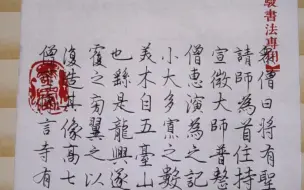 書法專用
眾僧曰將有聖
請師為首住持
宣微大師普整
僧惠演為之記
小大多寡之數
美木自五臺山
也繇是龍興遂
覆之旁翼之以
復造其像高七
僧言寺有